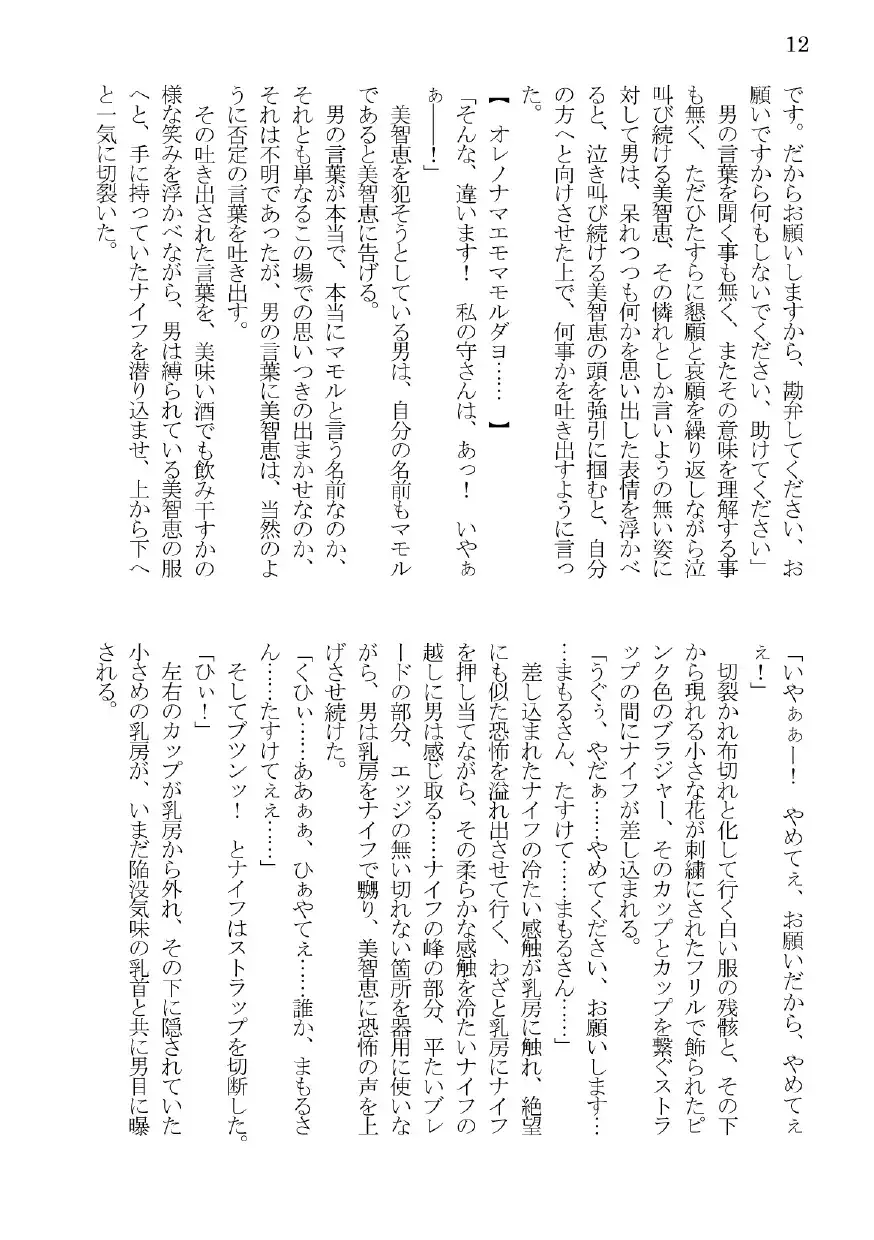 12
です。だからお願いしますから、勘弁してください、お
願いですから何もしないでください、助けてください」
男の言葉を聞く事も無く、またその意味を理解する事
も無く、ただひたすらに懇願と哀願を繰り返しながら泣
叫び続ける美智恵、その憐れとしか言いようの無い姿に
対して男は、呆れつつも何かを思い出した表情を浮かべ
ると、泣き叫び続ける美智恵の頭を強引に掴むと、自分
の方へと向けさせた上で、何事かを吐き出すように言っ
た。
【 オレノナマエモマモルダヨ…… 】
「そんな、違います! 私の守さんは、あっ! いやぁ
ぁ――!」
美智恵を犯そうとしている男は、自分の名前もマモル
であると美智恵に告げる。
男の言葉が本当で、本当にマモルと言う名前なのか、
それとも単なるこの場での思いつきの出まかせなのか、
それは不明であったが、男の言葉に美智恵は、当然のよ
うに否定の言葉を吐き出す。
その吐き出された言葉を、美味い酒でも飲み干すかの
様な笑みを浮かべながら、男は縛られている美智恵の服
へと、手に持っていたナイフを潜り込ませ、上から下へ
と一気に切裂いた。
「いやぁぁー! やめてぇ、お願いだから、やめてぇ
ぇ!」
切裂かれ布切れと化して行く白い服の残骸と、その下
から現れる小さな花が刺繍にされたフリルで飾られたピ
ンク色のブラジャー、そのカップとカップを繋ぐストラ
ップの間にナイフが差し込まれる。
「うぐぅ、やだぁ……やめてください、お願いします…
…まもるさん、たすけて……まもるさん……」
差し込まれたナイフの冷たい感触が乳房に触れ、絶望
にも似た恐怖を溢れ出させて行く、わざと乳房にナイフ
を押し当てながら、その柔らかな感触を冷たいナイフの
越しに男は感じ取る……ナイフの峰の部分、平たいブレ
ードの部分、エッジの無い切れない箇所を器用に使いな
がら、男は乳房をナイフで嬲り、美智恵に恐怖の声を上
げさせ続けた。
「くひぃ……ああぁぁ、ひぁやてぇ……誰か、まもるさ
ん……たすけてぇぇ……」
そしてブツンッ! とナイフはストラップを切断した。
「ひぃ!」
左右のカップが乳房から外れ、その下に隠されていた
小さめの乳房が、いまだ陥没気味の乳首と共に男目に曝
される。